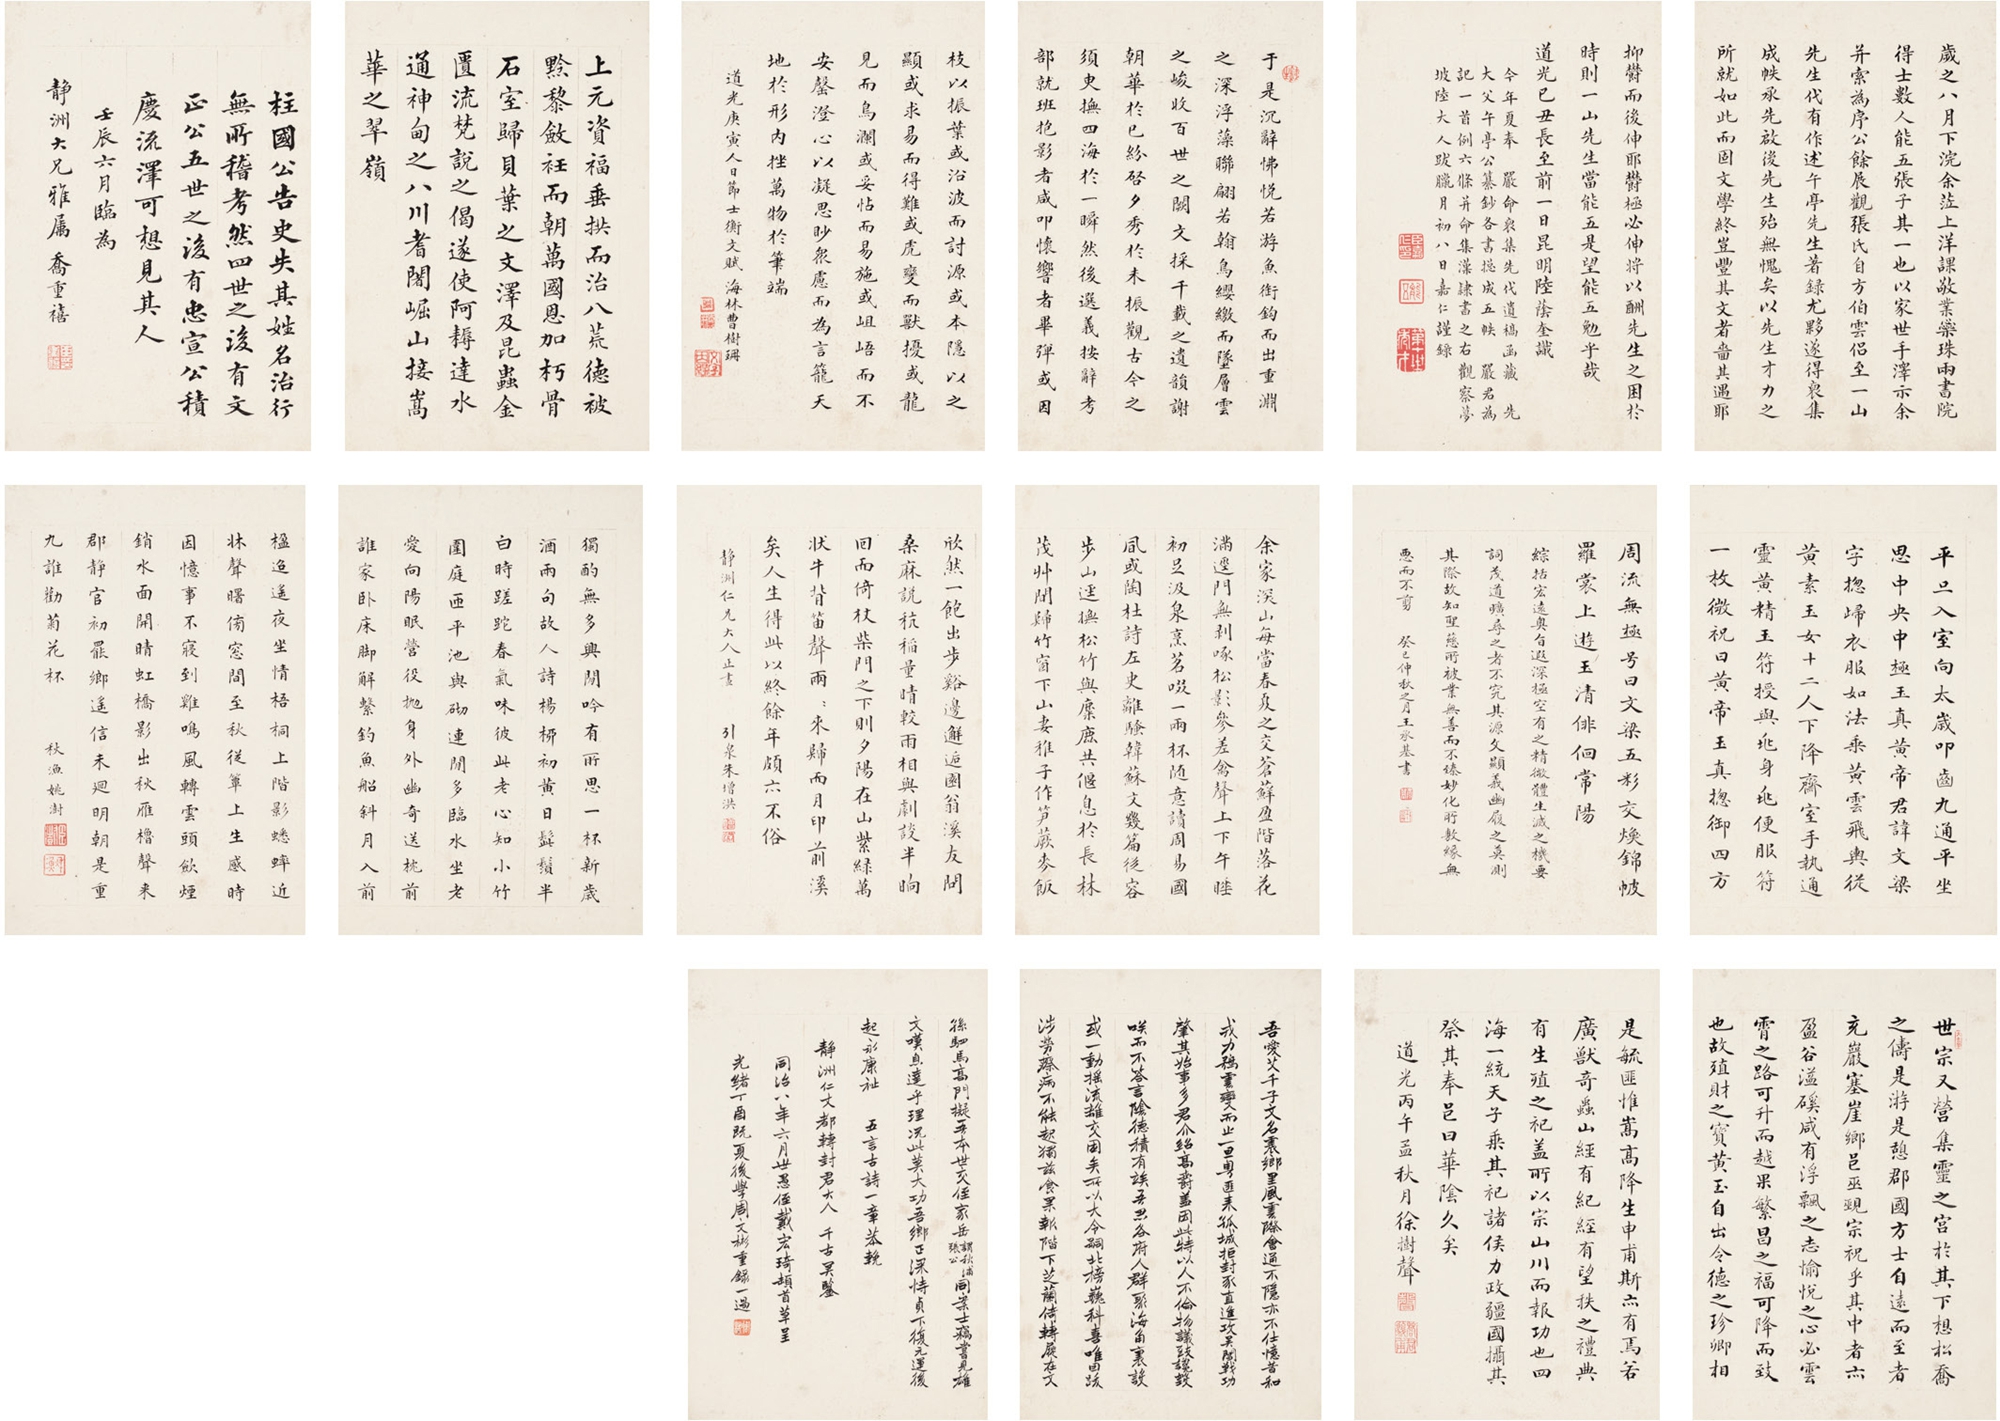 歲之八月下浣余蒞上洋課敬業藥珠兩書院
得士數人能五張子其一也以家世手澤示余
并索為序公餘展觀張氏自方伯雲侶至一山
先生代有作述午亭先生著錄尤夥遂得裒集
成帙承先啟後先生殆無愧矣以先生才力之
所就如此而固文學終豈豐其文者嗇其遇耶
抑欝而後伸耶欝極必伸將以酬先生之困於
時則一山先生當能五是望能五勉乎哉
道光己丑長至前一日昆明陸蔭奎識
今年夏奉 嚴命裒集先代遺稿函藏 先
大父午亭公纂鈔各書捴成五帙 嚴君為
記一首例六條并命集漢隷書之右觀察夢
坡陸大人跋臘月初八日嘉仁謹錄
于是沉辭怫悦若游魚銜鈎而出重淵
之深浮藻聯翩若翰鳥纓繳而墜層雲
之峻收百世之闕文採千載之遺韻謝
朝華於已紛啓夕秀於未振觀古今之
須臾撫四海於一瞬然後選義按辭考
部就班抱影者咸叩懷響者畢彈或因
枝以振葉或沿波而討源或本隱以之
顯或求易而得難或虎變而獸擾或龍
見而鳥瀾或妥怗而易施或岨峿而不
安罄澄心以凝思眇衆慮而為言籠天
地於形內挫萬物於筆端
道光庚寅人日節士衡文賦 海林曹樹珊
上元資福垂拱而治八荒德被
黔黎斂衽而朝萬國恩加朽骨
石室歸貝葉之文澤及昆蟲金
匱流梵說之偈遂使阿耨達水
通神甸之八川耆闍崛山接嵩
華之翠嶺
柱國公告史失其姓名治行
無所稽考然四世之後有文
正公五世之後有忠宣公積
慶流澤可想見其人
壬辰六月臨為
靜洲大兄雅属 喬重禧
平旦入室向太歲叩齒九通平坐
思中央中極玉真黃帝君諱文梁
字捴歸衣服如法乘黃雲飛輿從
黃素玉女十二人下降齋室手執通
靈黃精玉符授與兆身兆便服符
一枚微祝曰黃帝玉真捴御四方
周流無極号曰文梁五彩交煥錦帔
羅裳上遊玉清俳佪常陽
綜括宏遠奧自遐深極空有之精微體生滅之機要
詞茂道曠尋之者不究其源文顯義幽履之者莫測
其際故如聖慈所被業無善而不臻妙化所敷緣無
惡而不剪 癸巳仲秋之月王承基書
余家深山每當春夏之交蒼蘚盈階落花
滿逕門無剥啄松影參差禽聲上下午睡
初足汲泉烹茗啜一兩杯随意讀周易國
風或陶杜詩左史離騷韓蘇文幾篇從容
步山逕撫松竹與麋鹿共偃息於長林
茂艸間歸竹窗下山妻稚子作笋蕨麥飯
欣然一飽出步谿邊邂逅園翁溪友問
桑麻説秔稲量晴較雨相與劇談半晌
回而倚杖柴門之下則夕陽在山紫緑萬
狀牛背笛聲兩兩來歸而月印前溪
矣人生得此以終餘年頗六不俗
静洲仁兄大人正書 引泉朱增洪
獨酌無多興閒吟有所思一杯新歲
酒兩句故人詩楊柳初黃日髭鬚半
白時蹉跎春氣味彼此老心知小竹
圍庭匝平池與砌連閒多臨水坐老
愛向陽眠營役抛身外幽奇送枕前
誰家卧床脚解繫釣魚船斜月入前
楹迢遥夜坐情梧桐上階影蟋蟀近
牀聲曙傍窓間至秋從簟上生感時
因憶事不寢到雞鳴風轉雲頭歛煙
銷水面開晴虹橋影出秋雁櫓聲来
郡静官初罷鄉遥信未廻明朝是重
九誰勸菊花杯 秋漁姚澍
世宗又營集靈之宮於其下想松喬
之儔是遊是憩郡國方士自遠而至者
充巖塞崖鄉邑巫覡宗祝乎其中者亦
盈谷溢磎咸有浮飄之志愉悅之心必雲
霄之路可升而越果繁昌之福可降而致
也故殖財之寶黃玉自出令德之珍卿相
是毓匪惟嵩高降生申甫斯亦有焉若
廣獸奇蟲山經有紀經有望秩之禮典
有生殖之祀蓋所以宗山川而報功也四
海一統天子乘其祀諸侯力政彊國攝其
祭其奉邑曰華陰久矣
道光丙午孟秋月徐樹聲
吾愛艾千子文名震鄉里風雲際會通不隱亦不仕憶昔和
戎力竭雲變而止一旦粤匪来孤城拒封豕直進攻吳閶戰功
肇其始事多君介紹高爵蓋因此特以人不倫物議致譭毀
咲而不答言陰德積有族吾思各府人群聚海角裏設
或一動摇流離交困矣所以大令嗣北榜巍科喜唯因跋
涉勞瘵病不能起獨兹食果報階下芝蘭倚轉展在文
孫駟馬高門擬吾本世交侄家岳謂秋浦張公同業士竊嘗見雄
文嘆息達乎理况此莫大功吾鄉正深恃貞下復元運後
起永康祉 五言古詩一章恭輓
靜洲仁丈都轉封君大人 千古冥鑒
同治八年六月世愚侄戴宏琦頓首草呈
光緒丁酉既夏後學周文彬重錄一過